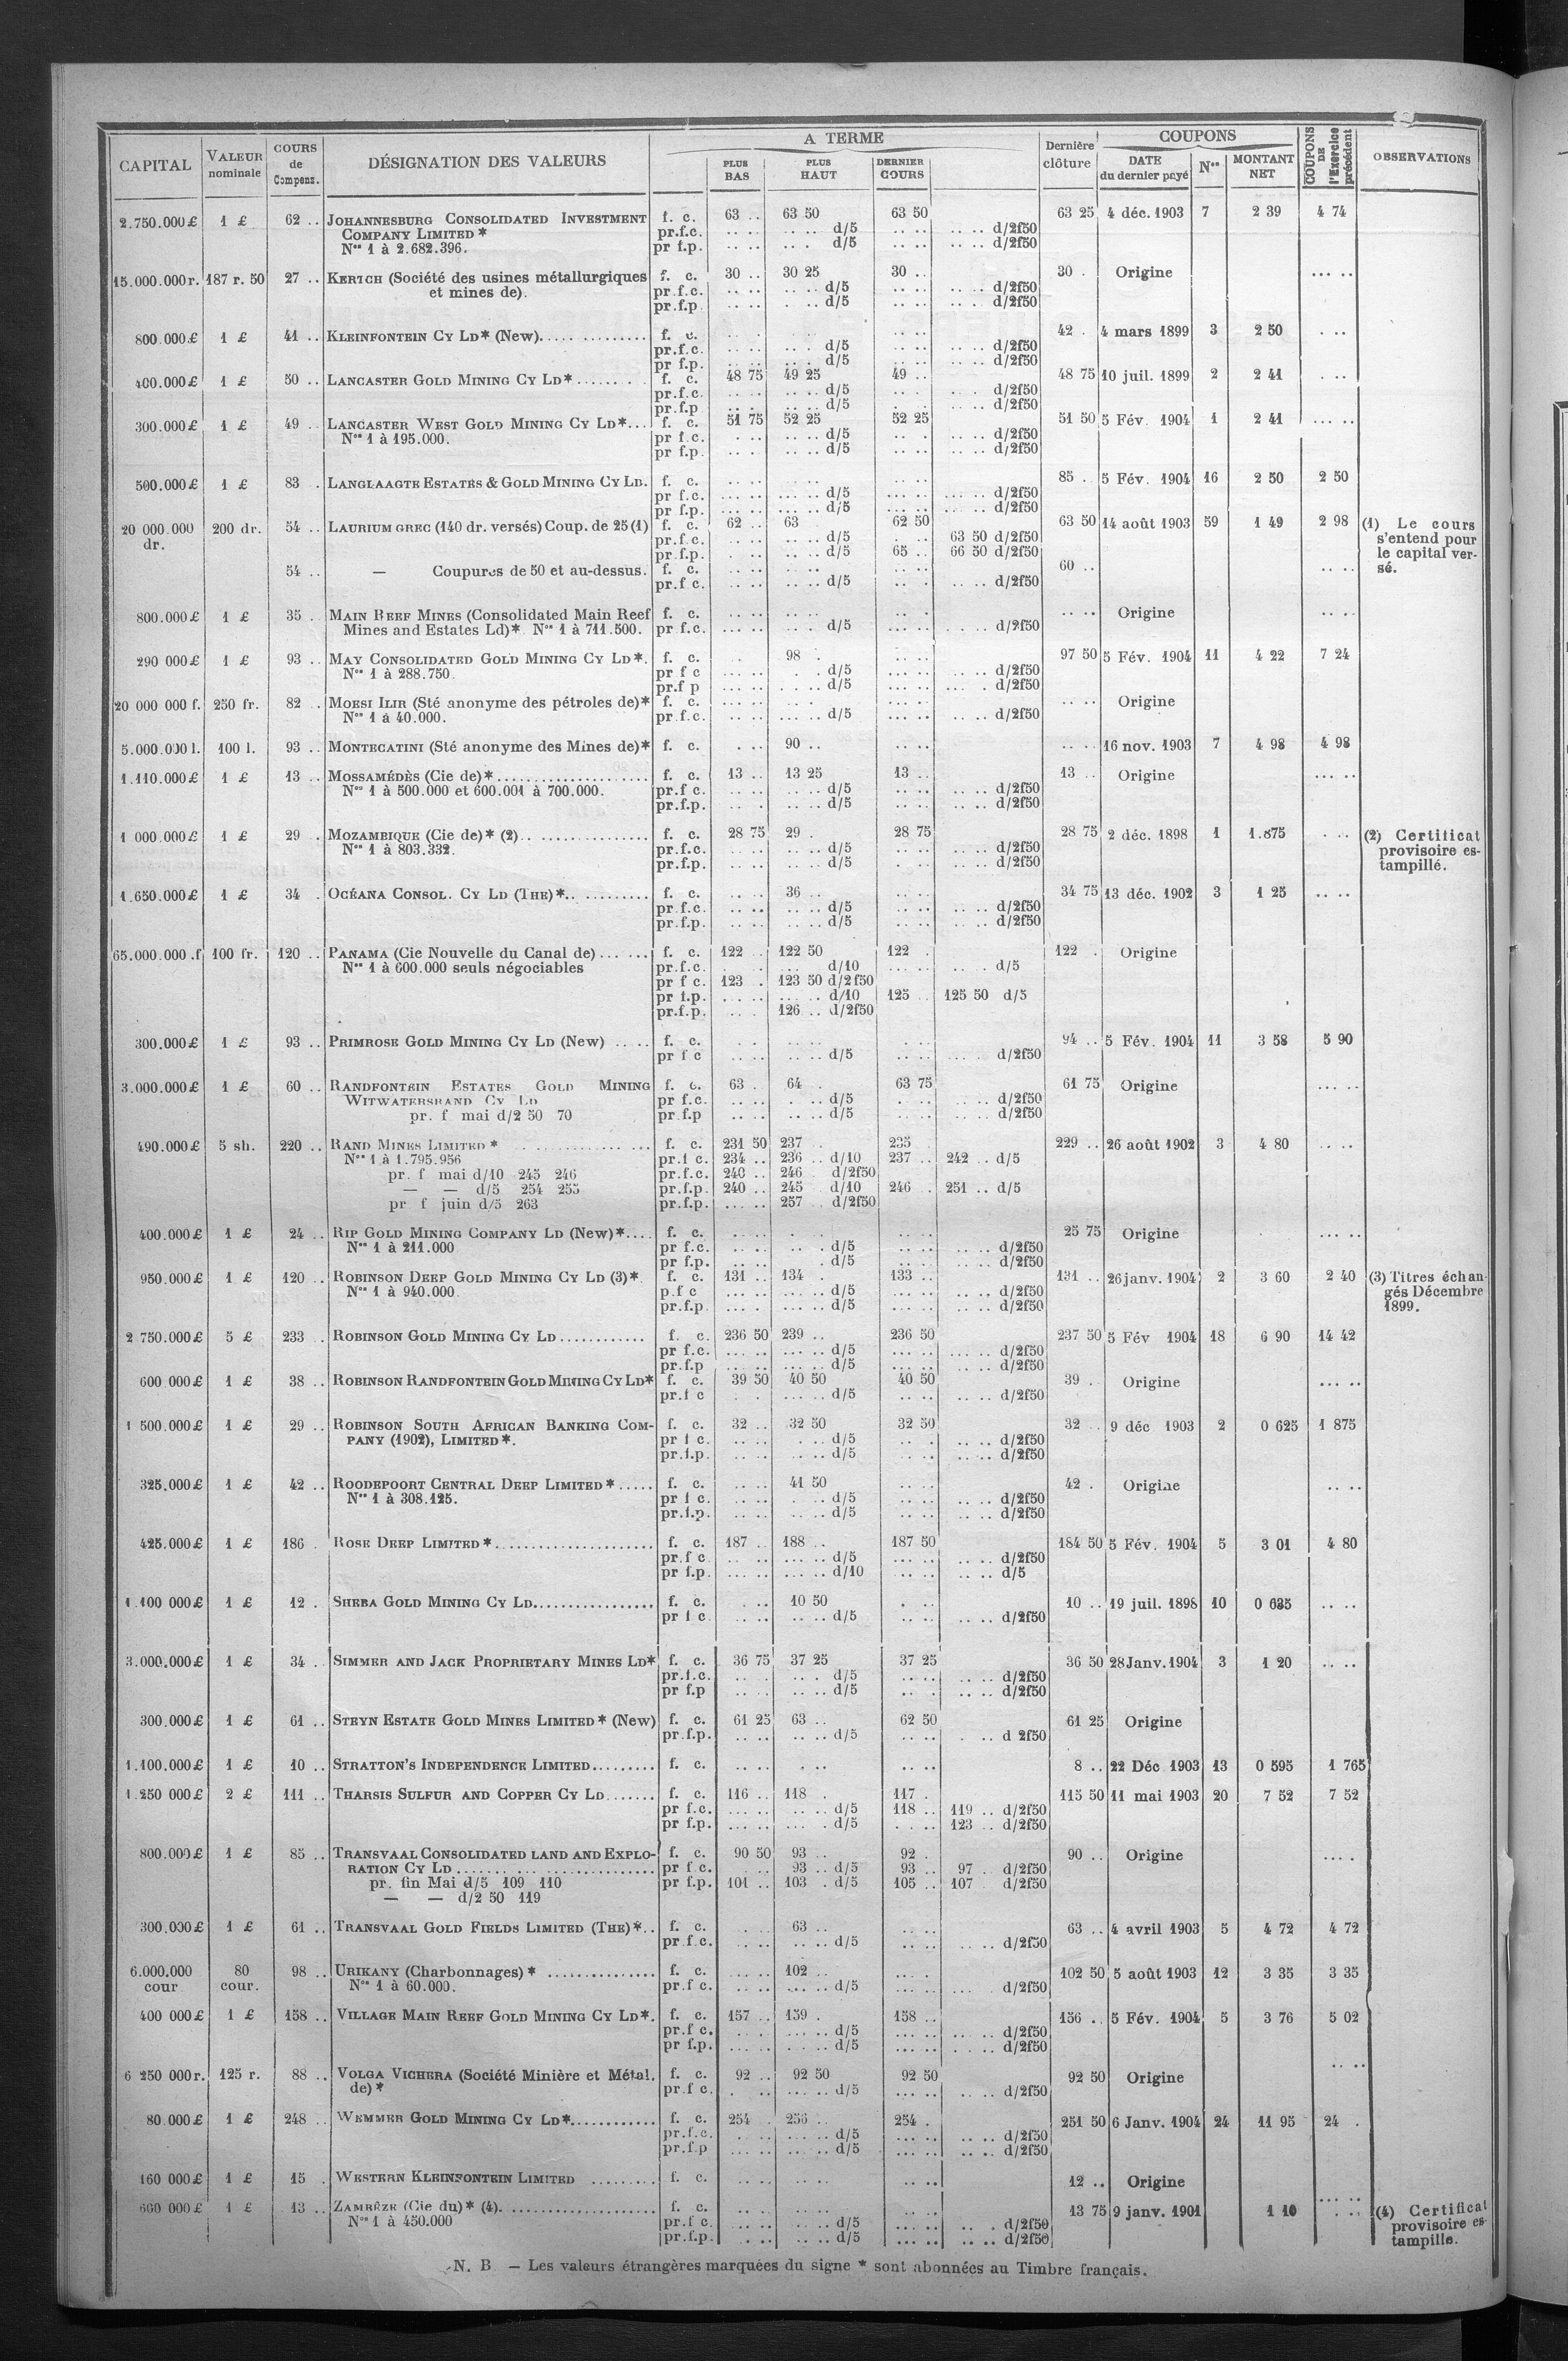 CAPITAL | VALEUR nominale | COURS de Compens. | DÉSIGNATION DES VALEURS | A TERME | PLUS BAS | PLUS HAUT | DERNIER COURS | Dernière clôture | COUPONS | DATE du dernier payé | Nos | MONTANT NET | COUPONS DE l'Exercice précédent | OBSERVATIONS
2.750.000 £ 1 £ 62 .. JOHANNESBURG CONSOLIDATED INVESTMENT f. c. 63 .. 63 50 63 50 63 25 4 déc. 1903 7 2 39 4 74
COMPANY LIMITED * pr.f.c. .. .. .. .. d/5 .. .. .. .. d/2f50
Nos 1 à 2.682.396. pr f.p. .. .. .. . d/5 .. .. .. .. d/2f50
15.000.000 r. 187 r. 50 27 .. KERTCH (Société des usines métallurgiques f. c. 30 .. 30 25 30 .. 30 . Origine ... ..
et mines de). pr.f.c. .. .. .. .. d/5 .. .. .. .. d/2f50
pr.f.p. .. .. .. .. d/5 .. .. .. .. d/2f50
800.000 £ 1 £ 41 .. KLEINFONTEIN CY LD * (New). f. c. 42 . 4 mars 1899 3 2 50 . ..
pr.f.c. .. .. .. .. d/5 .. .. .. .. d/2f50
pr f.p. .. .. .. .. d/5 .. .. .. .. d/2f50
400.000 £ 1 £ 50 .. LANCASTER GOLD MINING CY LD * f. c. 48 75 49 25 49 .. 48 75 10 juil. 1899 2 2 41 . ..
pr.f.c. .. .. .. .. d/5 .. . .. . d/2f50
pr.f.p .. .. .. .. d/5 . . .. .. d/2f50
300.000 £ 1 £ 49 .. LANCASTER WEST GOLD MINING CY LD *... f. c. 51 75 52 25 52 25 51 50 5 Fév. 1904 1 2 41 ... ..
Nos 1 à 195.000. pr f.c. . .. .. .. d/5 .. . .. .. d/2f50
pr f.p. .. . .. .. d/5 .. . .. .. d/2f50
500.000 £ 1 £ 83 . LANGLAAGTE ESTATES & GOLD MINING CY LD. f. c. 85 . 5 Fév. 1904 16 2 50 2 50
pr f.c. ... .. ... .. d/5 ... .. ... .. d/2f50
pr f.p. ... .. ... .. d/5 ... .. ... .. d/2f50
20 000.000 dr. 200 dr. 54 .. LAURIUM GREC (140 dr. versés) Coup. de 25 (1) f. c. 62 .. 63 62 50 63 50 14 août 1903 59 1 49 2 98 (1) Le cours s'entend pour le capital versé.
pr.f.c. .. .. .. .. d/5 . .. 63 50 d/2f50
pr.f.p. . .. .. .. d/5 65 .. 66 50 d/2f50
54 .. — Coupures de 50 et au-dessus. f. c. 60 .. .. ..
pr.f c. .. .. .. .. d/5 .. . .. .. d/2f50
800.000 £ 1 £ 35 . MAIN REEF MINES (Consolidated Main Reef f. c. .. .. Origine .. ..
Mines and Estates Ld) * Nos 1 à 711.500. pr f.c. ... .. .. . d/5 ... .. . .. . d/2f50
290 000 £ 1 £ 93 .. MAY CONSOLIDATED GOLD MINING CY LD *. f. c. 98 . 97 50 5 Fév. 1904 11 4 22 7 24
Nos 1 à 288.750. pr f c ... .. . . d/5 ... .. .. .. d/2f50
pr.f p ... .. . .. d/5 ... .. ... . d/2f50
20 000 000 f. 250 fr. 82 .. MOESI ILIR (Sté anonyme des pétroles de) * f. c. .. .. Origine
Nos 1 à 40.000. pr.f.c. .. .. ... .. d/5 .. .. .. .. d/2f50
5.000.000 l. 100 l. 93 .. MONTECATINI (Sté anonyme des Mines de) * f. c. . .. 90 .. .. .. 16 nov. 1903 7 4 98 4 98
1.110.000 £ 1 £ 13 .. MOSSAMÉDÈS (Cie de) * f. c. 13 .. 13 25 13 .. 13 .. Origine ... ..
Nos 1 à 500.000 et 600.001 à 700.000. pr.f c. .. .. .. .. d/5 .. .. .. .. d/2f50
pr.f.p. .. . .. .. d/5 .. .. .. .. d/2f50
1 000.000 £ 1 £ 29 . MOZAMBIQUE (Cie de) * (2). f. c. 28 75 29 . 28 75 28 75 2 déc. 1898 1 1.875 . .. (2) Certificat provisoire estampillé.
Nos 1 à 803.332. pr.f.c. .. .. d/5 .. .. d/2f50
pr.f.p. .. .. d/5 .. .. d/2f50
1.650.000 £ 1 £ 34 . OCÉANA CONSOL. CY LD (THE) *. f. c. 36 .. 34 75 13 déc. 1902 3 1 25 .. ..
pr.f.c. .. .. .. .. d/5 .. .. .. .. d/2f50
pr.f.p. .. .. .. .. d/5 .. .. .. .. d/2f50
65.000.000 .f 100 fr. 120 .. PANAMA (Cie Nouvelle du Canal de) f. c. 122 .. 122 50 122 . 122 . Origine
Nos 1 à 600.000 seuls négociables pr.f.c. d/10 d/5
pr f c. 123 . 123 50 d/2f50
pr f.p. d/10 125 .. 125 50 d/5
pr.f.p. 126 .. d/2f50
300.000 £ 1 £ 93 .. PRIMROSE GOLD MINING CY LD (New) f. c. 94 .. 5 Fév. 1904 11 3 58 5 90
pr f c .. .. .. .. d/5 d/2f50
3.000.000 £ 1 £ 60 .. RANDFONTEIN ESTATES GOLD MINING f. c. 63 . 64 . 63 75 61 75 Origine ... ..
WITWATERSRAND CY LD pr f.c. .. .. . .. d/5 .. .. d/2f50
pr. f mai d/2 50 70 pr.f.p .. .. .. .. d/5 .. .. d/2f50
490.000 £ 5 sh. 220 .. RAND MINES LIMITED * f. c. 231 50 237 . 235 229 .. 26 août 1902 3 4 80 .. ..
Nos 1 à 1.795.956 pr.f c. 234 .. 236 .. d/10 237 .. 242 .. d/5
pr. f mai d/10 245 246 pr.f.c. 240 .. 246 d/2f50
— — d/5 254 255 pr.f.p. 240 .. 245 d/10 246 . 251 .. d/5
pr f juin d/5 263 pr.f.p. ... .. 257 d/2f50
400.000 £ 1 £ 24 .. RIP GOLD MINING COMPANY LD (New) *.... f. c. 25 75 Origine ... ..
Nos 1 à 211.000 pr f.c. .. .. .. . d/5 .. .. .. .. d/2f50
pr f.p. .. .. . d/5 .. .. .. .. d/2f50
950.000 £ 1 £ 120 .. ROBINSON DEEP GOLD MINING CY LD (3) * f. c. 131 .. 134 . 133 .. 131 .. 26 janv. 1904 2 3 60 2 40 (3) Titres échangés Décembre 1899.
Nos 1 à 940.000 p.f c ... .. ... .. d/5 ... .. .. .. d/2f50
pr.f.p. ... . ... .. d/5 ... .. .. .. d/2f50
2 750.000 £ 5 £ 233 . ROBINSON GOLD MINING CY LD f. c. 236 50 239 .. 236 50 237 50 5 Fév 1904 18 6 90 14 42
pr f.c. ... .. ... .. d/5 ... .. ... .. d/2f50
pr.f.p ... .. ... .. d/5 ... .. .. .. d/2f50
600 000 £ 1 £ 38 .. ROBINSON RANDFONTEIN GOLD MINING CY LD * f. c. 39 50 40 50 40 50 39 . Origine ... ..
pr.f c . . ... .. d/5 .. .. .. .. d/2f50
1 500.000 £ 1 £ 29 .. ROBINSON SOUTH AFRICAN BANKING COM- f. c. 32 .. 32 50 32 50 32 .. 9 déc 1903 2 0 625 1 875
PANY (1902), LIMITED *. pr f c. .. .. . .. d/5 .. . .. .. d/2f50
pr.f.p. .. .. .. .. d/5 .. .. .. .. d/2f50
325.000 £ 1 £ 42 .. ROODEPOORT CENTRAL DEEP LIMITED * ..... f. c. .. .. 41 50 42 . Origine .. ..
Nos 1 à 308.125. pr f c. .. .. . .. d/5 .. .. .. .. d/2f50
pr.f.p. .. .. .. .. d/5 .. .. .. .. d/2f50
425.000 £ 1 £ 186 . ROSE DEEP LIMITED * f. c. 187 .. 188 .. 187 50 184 50 5 Fév. 1904 5 3 01 4 80
pr.f c .. .. ... .. d/5 ... .. .. .. d/2f50
pr f.p. ... .. ... .. d/10 .. .. .. .. d/5
1.100 000 £ 1 £ 12 . SHEBA GOLD MINING CY LD f. c. . .. 10 50 . .. 10 .. 19 juil. 1898 10 0 635 .. ..
pr f c. .. .. .. .. d/5 .. .. .. .. d/2f50
3.000.000 £ 1 £ 34 .. SIMMER AND JACK PROPRIETARY MINES LD * f. c. 36 75 37 25 37 25 36 50 28 Janv. 1904 3 1 20 .. ..
pr.f.c. .. . .. . d/5 .. .. .. .. d/2f50
pr f.p .. . .. .. d/5 .. . .. .. d/2f50
300.000 £ 1 £ 61 .. STEYN ESTATE GOLD MINES LIMITED * (New) f. c. 61 25 63 .. 62 50 61 25 Origine
pr.f.p. .. .. .. .. d/5 .. .. . .. d 2f50
1.100.000 £ 1 £ 10 .. STRATTON'S INDEPENDENCE LIMITED f. c. .. .. . .. .. .. 8 .. 22 Déc 1903 13 0 595 1 765
1.250 000 £ 2 £ 111 .. THARSIS SULFUR AND COPPER CY LD f. c. 116 .. 118 . 117 . 115 50 11 mai 1903 20 7 52 7 52
pr f.c. ... .. .. .. d/5 118 .. 119 .. d/2f50
pr f.p. ... .. ... . d/5 . .. 123 .. d/2f50
800.000 £ 1 £ 85 .. TRANSVAAL CONSOLIDATED LAND AND EXPLO- f. c. 90 50 93 .. 92 . 90 .. Origine ... .
RATION CY LD pr f c. . .. 93 .. d/5 93 .. 97 . d/2f50
pr. fin Mai d/5 109 110 pr f.p. 101 .. 103 . d/5 105 .. 107 d/2f50
— — d/2 50 119
300.000 £ 1 £ 61 .. TRANSVAAL GOLD FIELDS LIMITED (THE) *.. f. c. 63 .. 63 .. 4 avril 1903 5 4 72 4 72
pr.f.c. .. .. .. .. d/5 .. .. .. .. d/2f50
6.000.000 cour 80 cour. 98 .. URIKANY (Charbonnages) * f. c. 102 .. 102 50 5 août 1903 12 3 35 3 35
Nos 1 à 60.000. pr.f c. ... .. ... .. d/5 d/2f50
400 000 £ 1 £ 158 .. VILLAGE MAIN REEF GOLD MINING CY LD *. f. c. 157 .. 159 . 158 .. 156 .. 5 Fév. 1904 5 3 76 5 02
pr.f c. . . ... .. d/5 ... .. .. .. d/2f50
pr f.p. ... .. ... .. d/5 ... .. . .. d/2f50
6 250 000 r. 125 r. 88 .. VOLGA VICHERA (Société Minière et Métal. f. c. 92 .. 92 50 92 50 92 50 Origine .. ..
de) * pr.f c. . .. ... .. d/5 ... .. .. .. d/2f50
80.000 £ 1 £ 248 .. WEMMER GOLD MINING CY LD * f. c. 254 . 256 .. 254 . 251 50 6 Janv. 1904 24 11 95 24 .
pr.f.c. . .. ... .. d/5 ... .. .. .. d/2f50
pr.f.p ... .. ... .. d/5 ... .. .. .. d/2f50
160 000 £ 1 £ 15 . WESTERN KLEINFONTEIN LIMITED f. c. .. .. .. .. .. .. 12 .. Origine
600 000 £ 1 £ 13 .. ZAMBÈZE (Cie du) * (4). f. c. 13 75 9 janv. 1901 1 10 . .. (4) Certificat provisoire estampille.
Nos 1 à 450.000 pr.f c. .. .. .. .. d/5 ... .. .. . d/2f50
pr.f.p. . .. .. .. d/5 ... .. .. .. d/2f50
N. B — Les valeurs étrangères marquées du signe * sont abonnées au Timbre français.